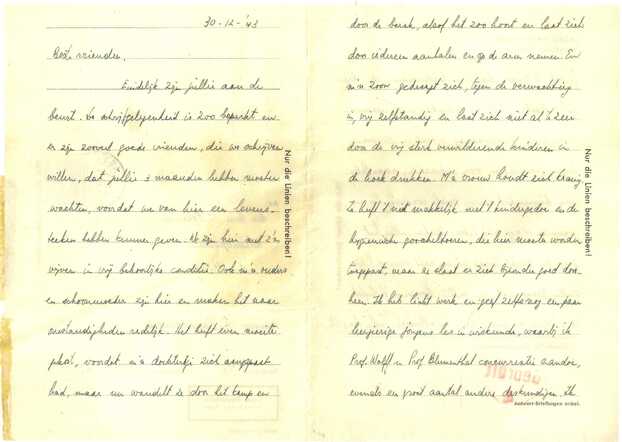 30-12-'43
Beste vrienden,
Eindelijk zijn jullie aan de
beurt. De schrijfgelegenheid is zoo beperkt en
er zijn zooveel goede vrienden, die we schrijven
willen, dat jullie maanden hebben moeten
wachten, voordat we van hier een levens-
teeken hebben kunnen geven. We zijn hier met z'n
vijven in vrij behoorlijke conditie. Ook m'n ouders
en schoonmoeder zijn hier en maken het naar
omstandigheden redelijk. Het heeft even moeite
gekost, voordat m'n dochtertje zich aangepast
had, maar nu wandelt ze door het kamp en
Nur die Linien beschreiben!
door de barak, alsof het zoo hoort en laat zich
door iedereen aanhalen en op de arm nemen. En
m'n zoon gedraagt zich, tegen de verwachting
in, vrij zelfstandig en laat zich niet al te zeer
door de vrij sterk verwilderende kinderen in
de hoek drukken. M'n vrouw houdt zich kranig.
Ze heeft 't niet makkelijk met 't kindergedoe en de
hygienische goocheltoeren, die hier moeten worden
toegepast, maar ze slaat er zich bijzonder goed door-
heen. Ik heb licht werk en geef zelfs nog een paar
leergierige jongens les in wiskunde, waarbij ik
Prof. Wolff en Prof. Blumenthal concurrentie aandoe,
evenals een groot aantal andere deskundigen. Ik
Nur die Linien beschreiben!